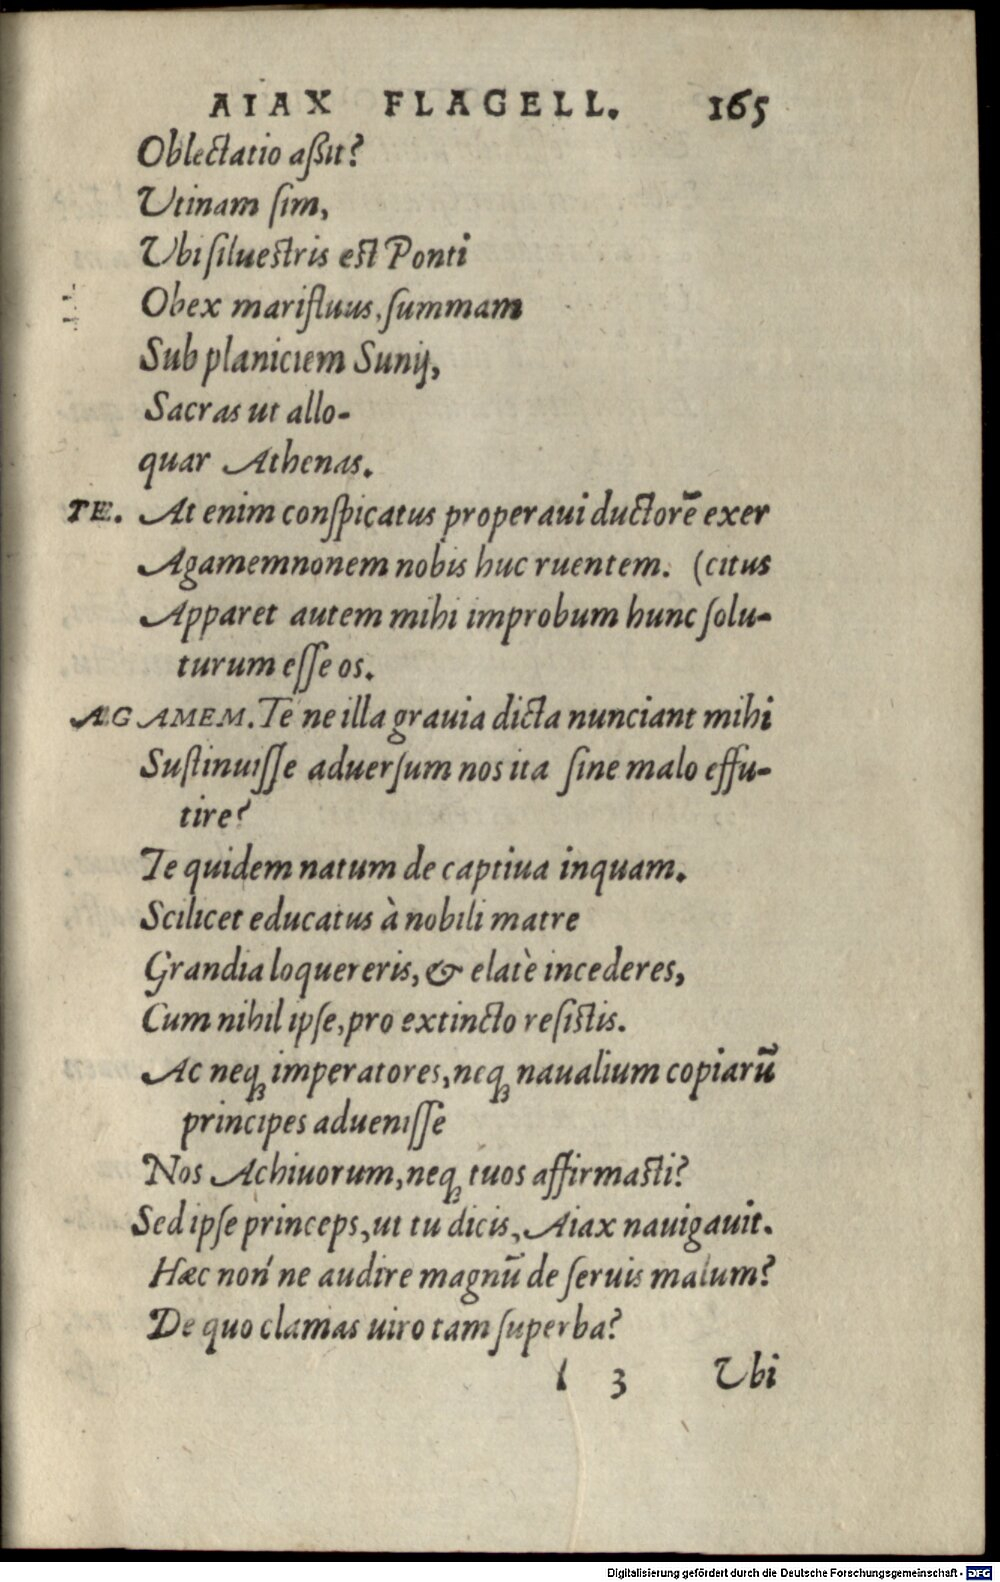 AIAX FLAGELL. 165
Oblectatio aßit?
Utinam ſim,
Ubi ſilueſtris eſt Ponti
Obex marifluus, ſummam
Sub planiciem Sunij,
Sacras ut allo-
quar Athenas.
TE. At enim conſpicatus properaui ductorē exer
Agamemnonem nobis huc ruentem. (citus
Apparet autem mihi improbum hunc ſolu-
turum eſſe os.
AGAMEM. Te ne illa grauia dicta nunciant mihi
Suſtinuiſſe aduerſum nos ita ſine malo effu-
tire?
Te quidem natum de captiua inquam.
Scilicet educatus à nobili matre
Grandia loquereris, & elatè incederes,
Cum nihil ipſe, pro extincto reſiſtis.
Ac neqꝫ imperatores, neqꝫ naualium copiarū
principes adueniſſe
Nos Achiuorum, neqꝫ tuos affirmaſti?
Sed ipſe princeps, ut tu dicis, Aiax nauigauit.
Hæc non' ne audire magnū de ſeruis malum?
De quo clamas uiro tam ſuperba?
l 3 Ubi
Digitalisierung gefördert durch die Deutsche Forschungsgemeinschaft - DFG